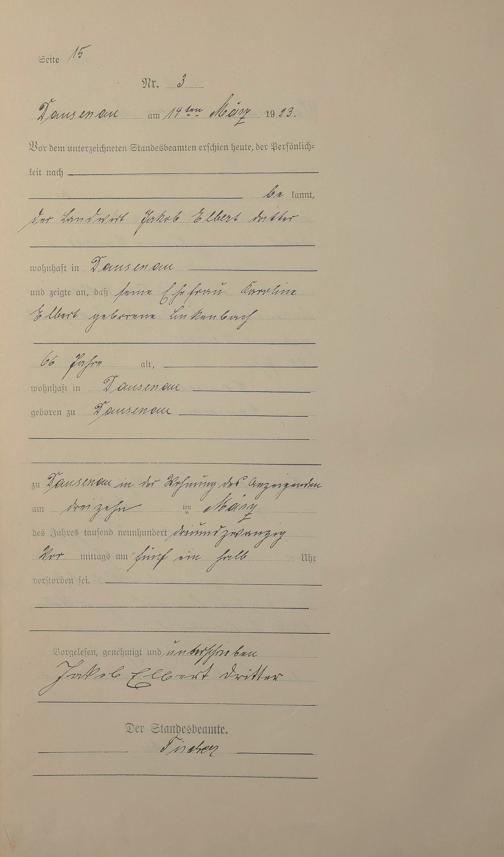 Seite 15
Nr. 3
Dausenau am 14ten März 1923.
Vor dem unterzeichneten Standesbeamten erschien heute, der Persönlich-
keit nach
be kannt,
der Landwirt Jakob Elbert dritter
wohnhaft in Dausenau
und zeigte an, daß seine Ehefrau Karoline
Elbert geborene Linkenbach
66 Jahre alt,
wohnhaft in Dausenau
geboren zu Dausenau
zu Dausenau in der Wohnung des Anzeigenden
am dreizehn im März
des Jahres tausend neunhundert dreiundzwanzig
Vor mittags um fünf ein halb Uhr
verstorben sei.
Vorgelesen, genehmigt und unterschrieben
Jakob Elbert dritter
Der Standesbeamte.
Fischer